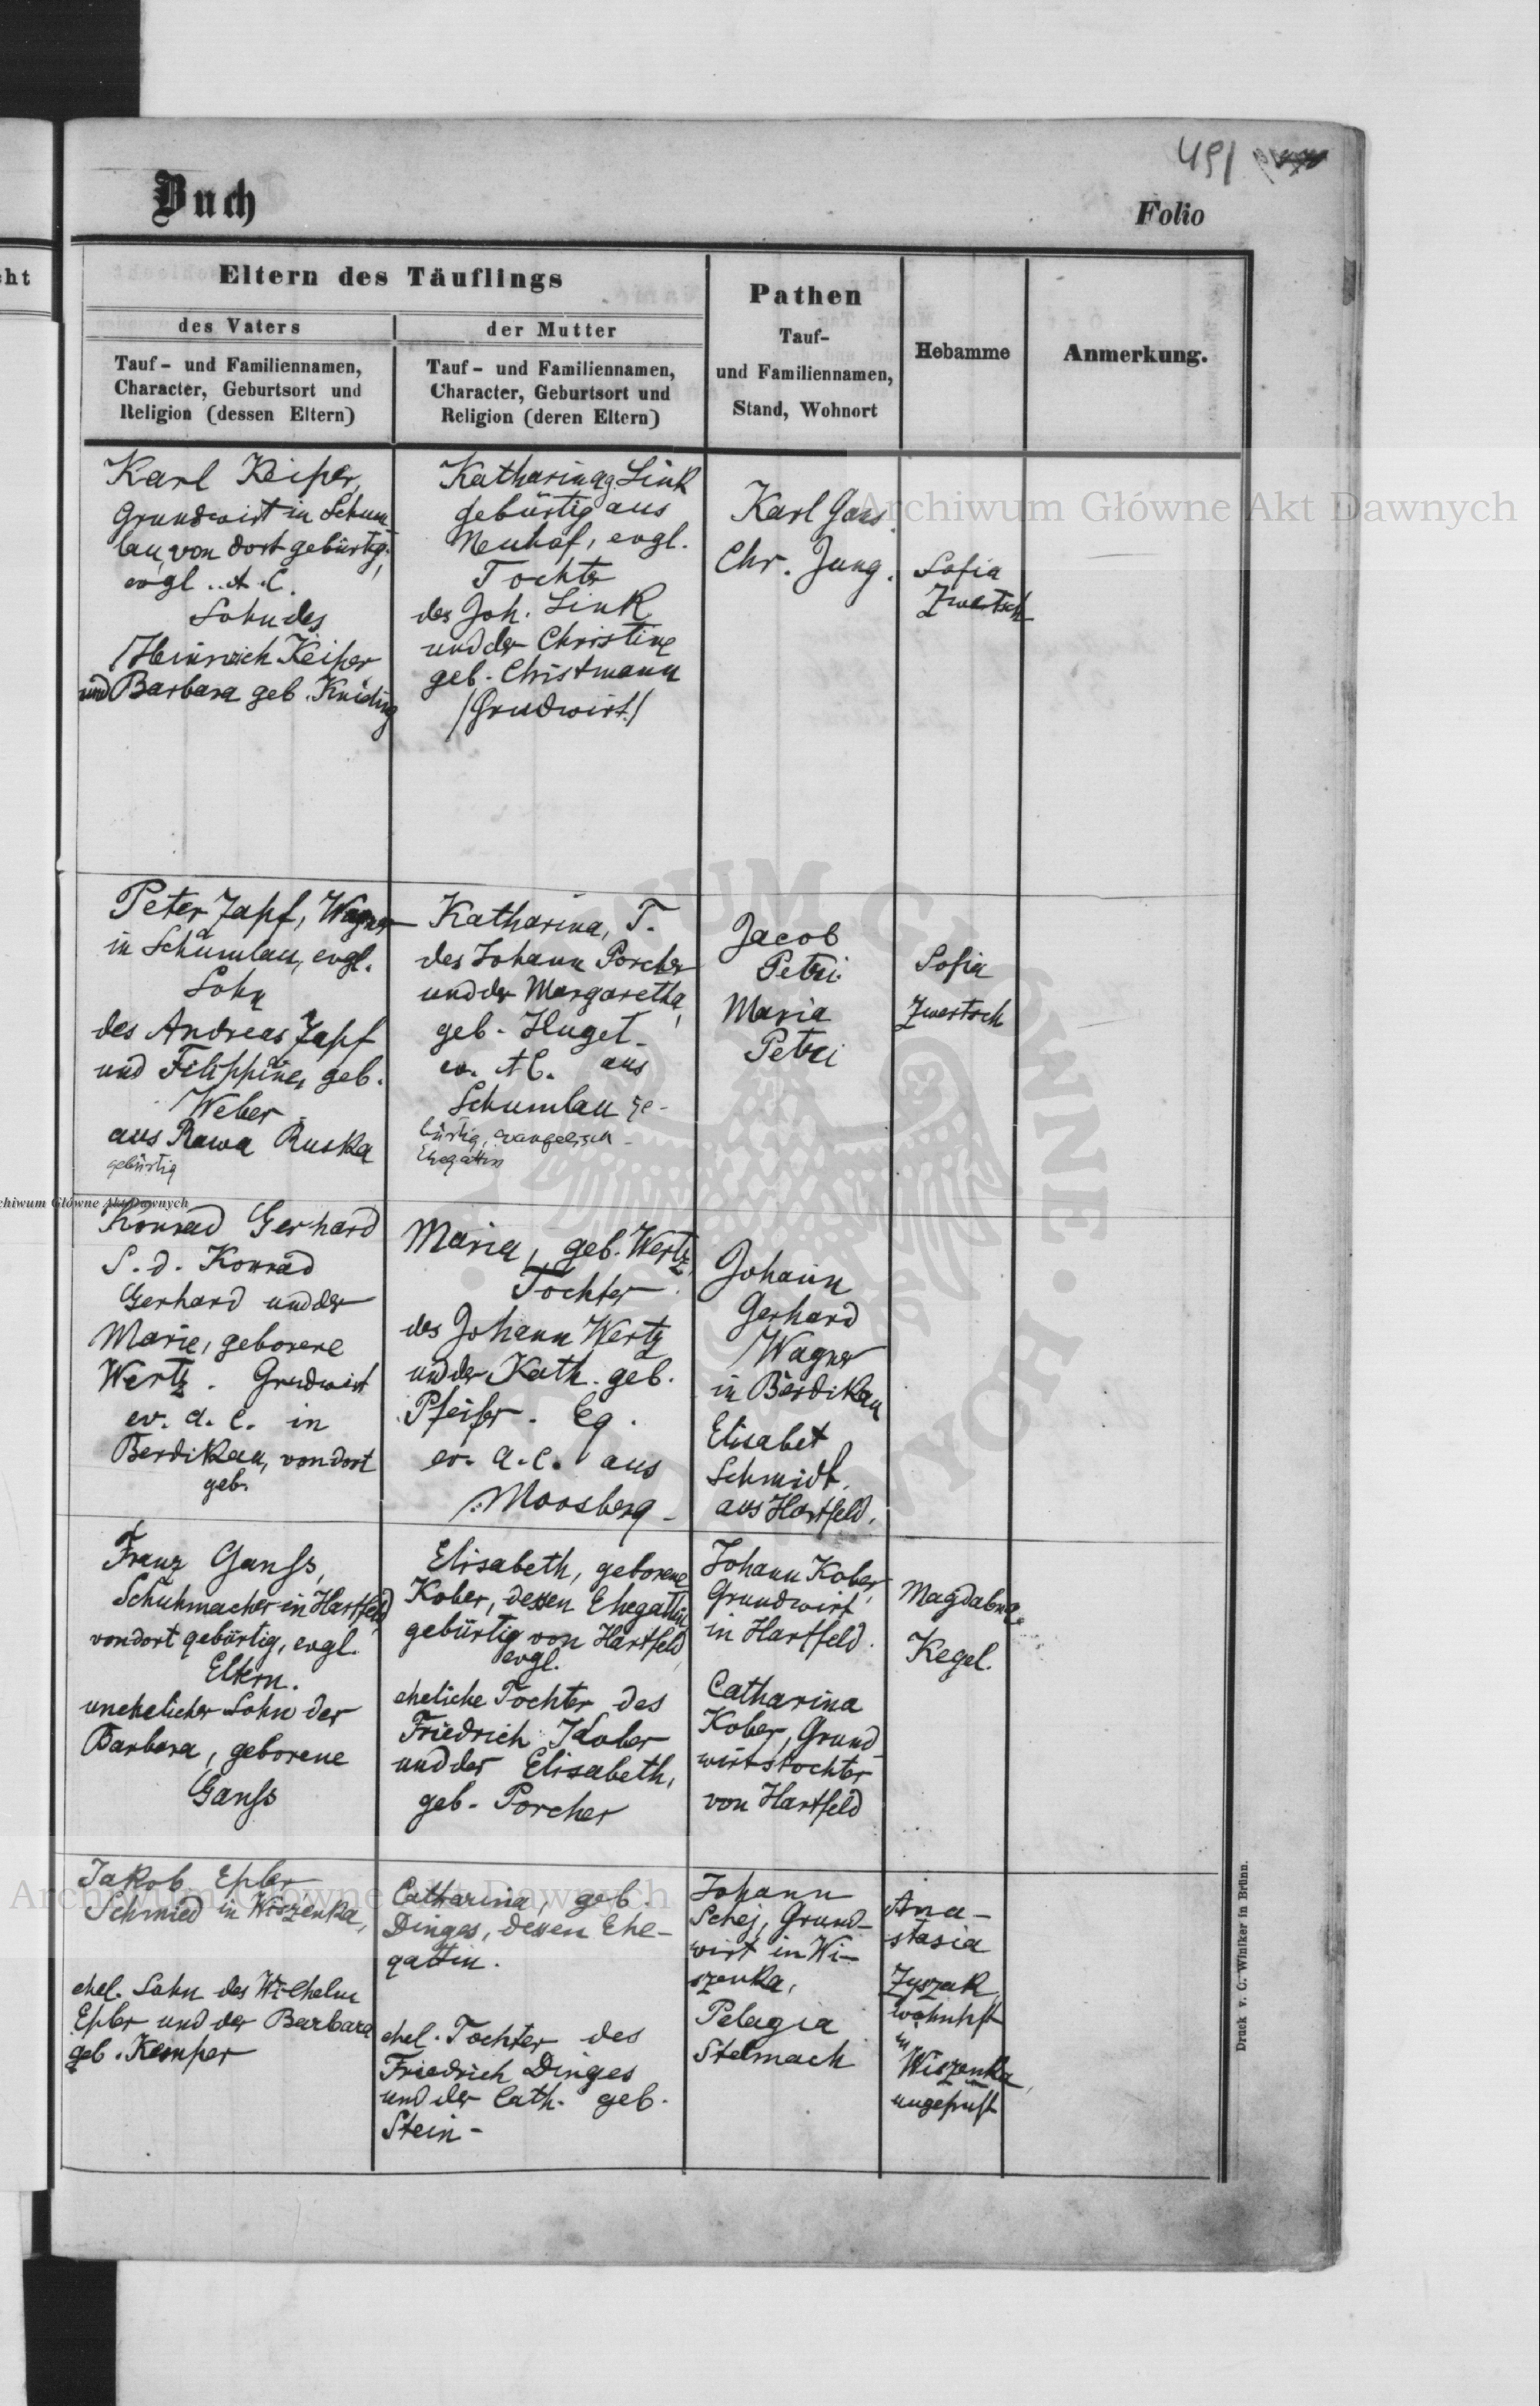 491
Buch
Folio
cht
Eltern des Täuflings
des Vaters
der Mutter
Tauf- und Familiennamen,
Character, Geburtsort und
Religion (dessen Eltern)
Tauf- und Familiennamen,
Character, Geburtsort und
Religion (deren Eltern)
Pathen
Tauf-
und Familiennamen,
Stand, Wohnort
Hebamme
Anmerkung.
Karl Keiper,
Grundwirt in Schum-
lau, von dort gebürtig,
evgl. A. C.
Sohn des
Heinreich Keiper
und Barbara geb. Kniding
Katharina g. Link
gebürtig aus
Neuhof, evgl.
Tochter
des Joh. Link
und der Christine
geb. Christmann
/Grudwirt/
Karl Gans
Chr. Jung.
Sofia
Zwertsch
Peter Zapf, Wagner
in Schumlau, evgl.
Sohn
des Andreas Zapf
und Filippine, geb.
Weber
aus Rawa Ruska
gebürtig
Katharina, T.
des Johann Porcher
und der Margaretha,
geb. Huget
ev. A C. aus
Schumlau ge-
bürtig, evangelisch -
Ehegattin
Jacob
Petri
Maria
Petri
Sofia
Zwertsch
Konrad Gerhard
S. d. Konrad
Gerhard und der
Marie, geborene
Wertz. Grudwirt
ev. a. c. in
Berdikau, von dort
geb.
Maria, geb. Wertz,
Tochter
des Johann Wertz
und der Kath. geb.
Pfeifer. Eg.
ev. a. c. aus
Moosberg -
Johann
Gerhard
Wagner
in Berdikau
Elisabet
Schmidt,
aus Hartfeld.
Franz Ganss,
Schuhmacher in Hartfeld
von dort gebürtig, evgl.
Eltern.
unehelicher Sohn der
Barbara, geborene
Ganss
Elisabeth, geborene
Kober, dessen Ehegattin
gebürtig von Hartfeld,
evgl.
eheliche Tochter des
Friedrich Kober
und der Elisabeth,
geb. Porcher
Johann Kober,
Grundwirt
in Hartfeld.
Catharina
Kober, Grund-
wirtstochter
von Hartfeld
Magdalena
Kegel.
Jakob Epler
Schmied in Wiszenka,
ehel. Sohn des Wilhelm
Epler und der Barbara
geb. Kemper
Catharina, geb.
Dinges, dessen Ehe-
gattin.
ehel. Tochter des
Friedrich Dinges
und der Cath. geb.
Stein -
Johann
Schej, Grund-
wirt in Wi-
szenka,
Pelagia
Stelmach
Ana-
stasia
Zyszak,
wohnhft
in
Wiszenka,
ungeprüft
Druck v. C. Winiker in Brünn.
Archiwum Główne Akt Dawnych
Archiwum Główne Akt Dawnych
chiwum Główne Akt Dawnych